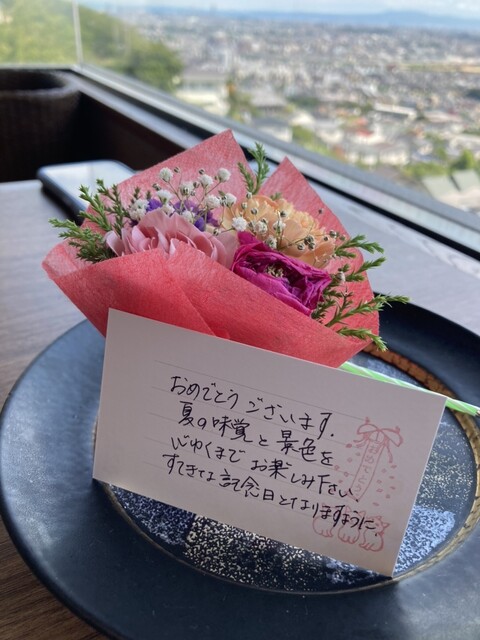 おめでとうございます。
夏の味覚と景色を
心ゆくまでお楽しみ下さい
すてきな記念日となりますように。
おめでとう